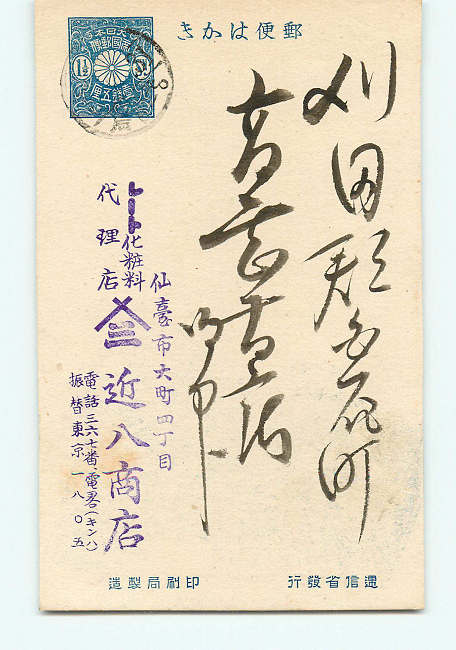 郵便はかき
大日本帝國郵便
1½
壹錢五厘
刈田郡白石町
御中
仙臺市大町四丁目
レート化粧料
代理店
三 近八商店
電話三六七番・電畧(キンハ)
振替東京一八〇五
遞信省發行
印刷局製造